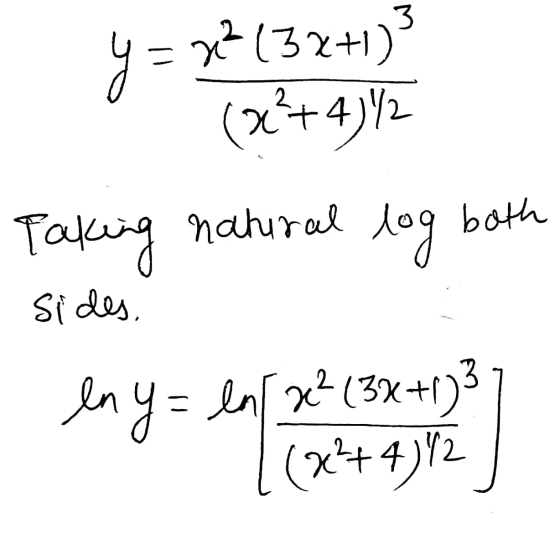 y = x²(3x+1)³ / (x²+4)^1/2
Taking natural log both
sides.
ln y = ln[x²(3x+1)³ / (x²+4)^1/2]